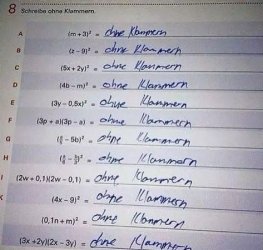 8 Schreibe ohne Klammern.
A (m + 3)² = ohne Klammern
B (z – 9)² = ohne Klammern
C (5x + 2y)² = ohne Klammern
D (4b – m)² = ohne Klammern
E (3y – 0,5x)² = ohne Klammern
F (3p + a)(3p – a) = ohne Klammern
G – 5b)² = ohne Klammern
H = ohne Klammern
I (2w + 0,1)(2w – 0,1) = ohne Klammern
K (4x – 9)² = ohne Klammern
(0,1n + m)² = ohne Klammern
(3x +2y)(2x – 3y) = ohne Klammern